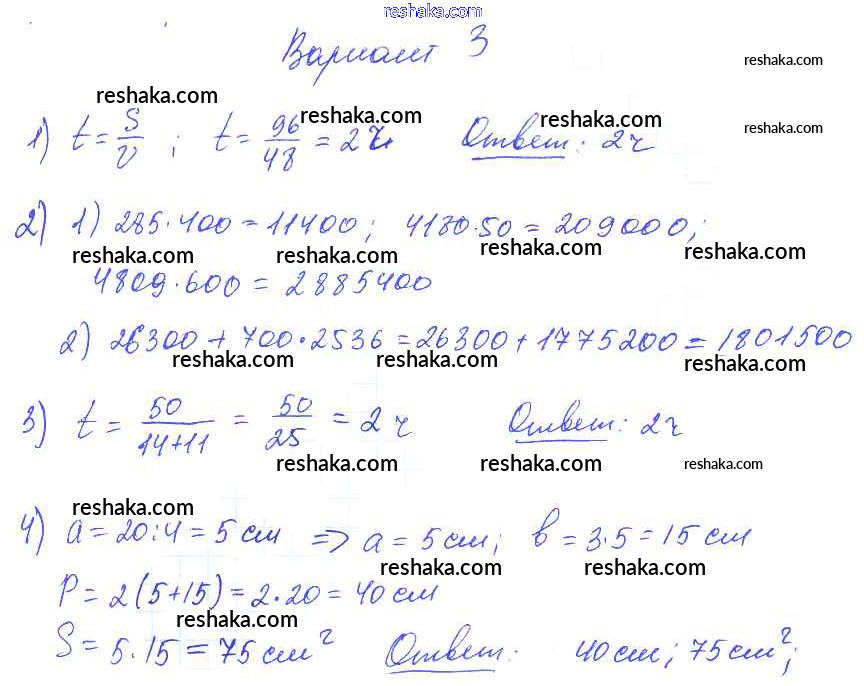 reshaka.com
Вариант 3
reshaka.com
reshaka.com reshaka.com reshaka.com reshaka.com
1) t = S/v ; t = 96/48 = 2 ч Ответ: 2 ч
2) 1) 285·400 = 11400; 4180·50 = 209000;
reshaka.com reshaka.com reshaka.com reshaka.com
4809·600 = 2885400
2) 26300 + 700·2536 = 26300 + 1775200 = 1801500
reshaka.com reshaka.com reshaka.com
3) t = 50/(14+11) = 50/25 = 2 ч Ответ: 2 ч
reshaka.com reshaka.com reshaka.com
reshaka.com
4) a = 20:4 = 5 см => a = 5 см; b = 3·5 = 15 см
reshaka.com reshaka.com
P = 2(5+15) = 2·20 = 40 см
reshaka.com
S = 5·15 = 75 см² Ответ: 40 см; 75 см²;